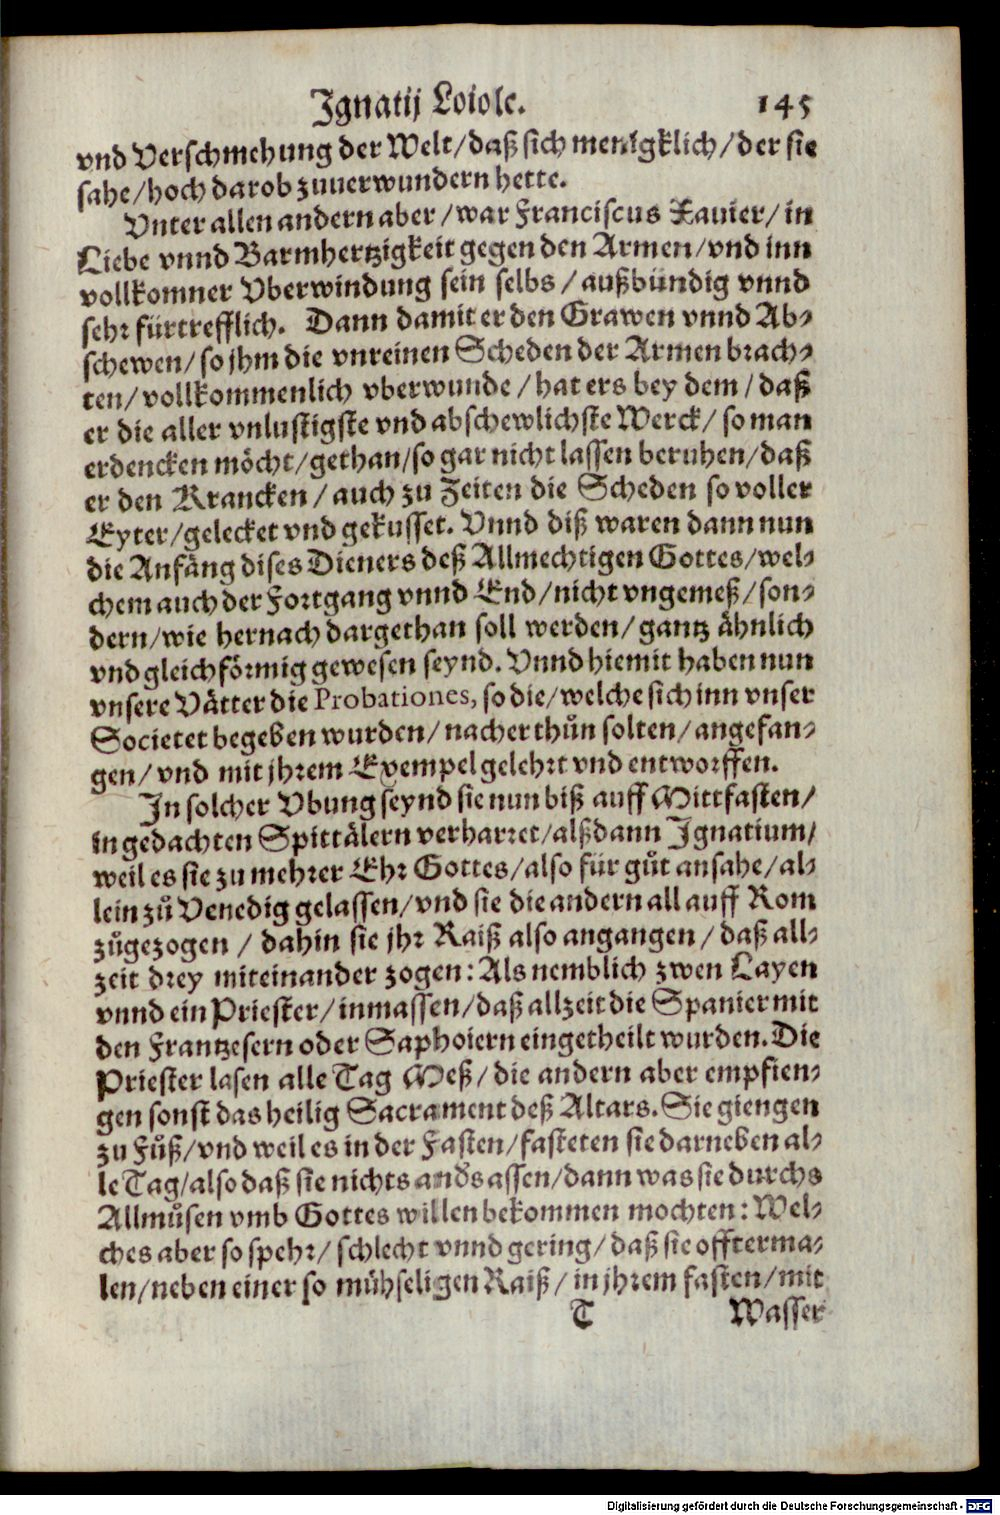 Ignatij Loiole. 145
vnd Verschmehung der Welt/daß sich menigklich/der sie
sahe/hoch darob zuuerwundern hette.
Vnter allen andern aber/war Franciscus Xauier/in
Liebe vnnd Barmhertzigkeit gegen den Armen/vnd inn
vollkomner Vberwindung sein selbs/außbündig vnnd
sehr fürtrefflich. Dann damit er den Grawen vnnd Ab-
schewen/so jhm die vnreinen Scheden der Armen brach-
ten/vollkommenlich vberwunde/hat ers bey dem/daß
er die aller vnlustigste vnd abschewlichste Werck/so man
erdencken möcht/gethan/so gar nicht lassen beruhen/daß
er den Krancken/auch zu Zeiten die Scheden so voller
Eyter/gelecket vnd gekusset. Vnnd diß waren dann nun
die Anfäng dises Dieners deß Allmechtigen Gottes/wel-
chem auch der Fortgang vnnd End/nicht vngemeß/son-
dern/wie hernach dargethan soll werden/gantz ähnlich
vnd gleichförmig gewesen seynd. Vnnd hiemit haben nun
vnsere Vätter die Probationes, so die/welche sich inn vnser
Societet begeben wurden/nacher thůn solten/angefan-
gen/vnd mit jhrem Exempel gelehrt vnd entworffen.
In solcher Vbung seynd sie nun biß auff Mittfasten/
in gedachten Spittälern verharret/alßdann Ignatium/
weil es sie zu mehrer Ehr Gottes/also für gůt ansahe/al-
lein zů Venedig gelassen/vnd sie die andern all auff Rom
zůgezogen/dahin sie jhr Raiß also angangen/daß all-
zeit drey miteinander zogen: Als nemblich zwen Layen
vnnd ein Priester/inmassen/daß allzeit die Spanier mit
den Frantzesern oder Saphoiern eingetheilt wurden. Die
Priester lasen alle Tag Meß/die andern aber empfien-
gen sonst das heilig Sacrament deß Altars. Sie giengen
zu Fůß/vnd weil es in der Fasten/fasteten sie darneben al-
le Tag/also daß sie nichts anders assen/dann was sie durchs
Allmůsen vmb Gottes willen bekommen mochten: Wel-
ches aber so spehr/schlecht vnnd gering/daß sie offterma-
len/neben einer so mühseligen Raiß/in jhrem fasten/mit
T Wasser
Digitalisierung gefördert durch die Deutsche Forschungsgemeinschaft - DFG